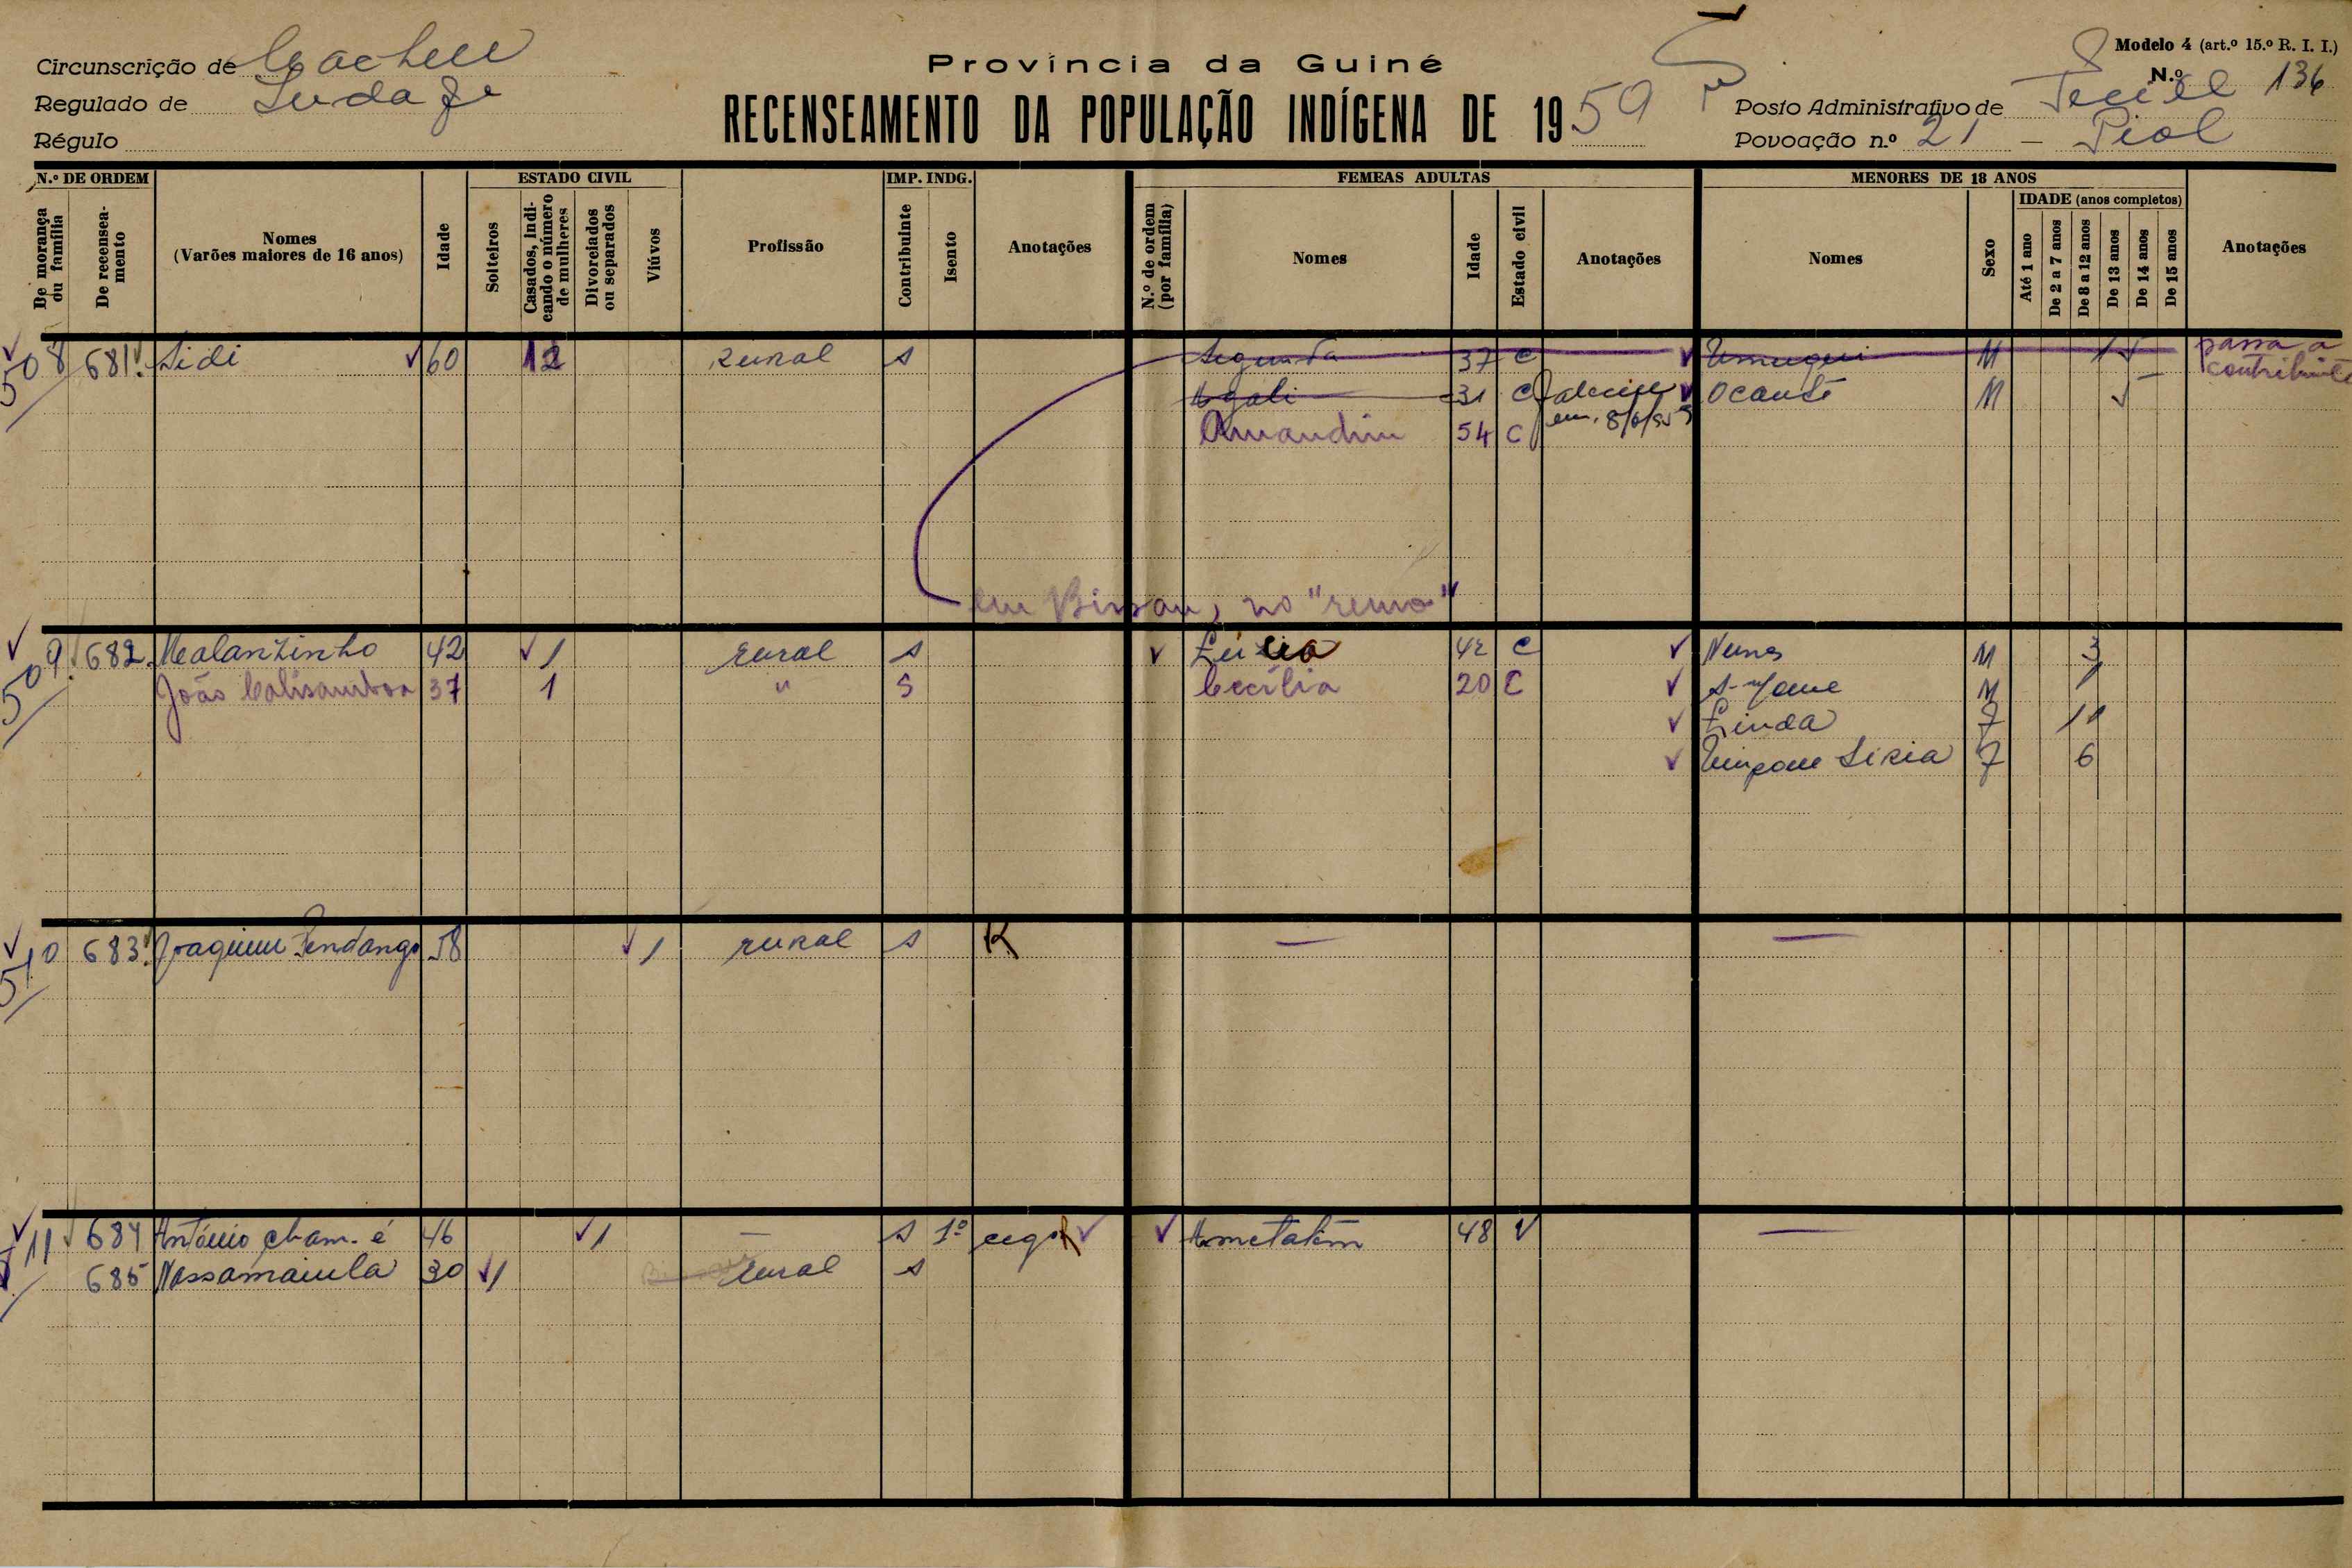 Circunscrição de Cacheu
Regulado de
Régulo
Província da Guiné
RECENSEAMENTO DA POPULAÇÃO INDÍGENA DE 1959
Modelo 4 (art.º 15.º R. I. I.)
N.º 136
Posto Administrativo de
Povoação n.º 21 - Piol
N.º DE ORDEM
De morança ou família
De recenseamento
Nomes
(Varões maiores de 16 anos)
Idade
ESTADO CIVIL
Solteiros
Casados, indicando o número de mulheres
Divorciados ou separados
Viúvos
Profissão
IMP. INDG.
Contribuinte
Isento
Anotações
FEMEAS ADULTAS
N.º de ordem (por família)
Nomes
Idade
Estado civil
Anotações
MENORES DE 18 ANOS
Nomes
Sexo
IDADE (anos completos)
Até 1 ano
De 2 a 7 anos
De 8 a 12 anos
De 13 anos
De 14 anos
De 15 anos
Anotações
508 681. Sidi 60 12 Rural s Segunda 37 C M passa a
contribuinte
Agali 31 C Faleceu M
em
54 C
em Bissau, no "remo"
509. 682. Malanzinho 42 1 rural s Lúcia 42 C Nunes M 3
João 37 1 " S Cecília 20 C M 1
Linda F 11
F 6
510 683. Joaquim 58 1 rural s R — —
511 684 António cham. é 46 1 — s 1º cego R Ametatem 48 V —
685 Nassamaiula 30 1 rural s